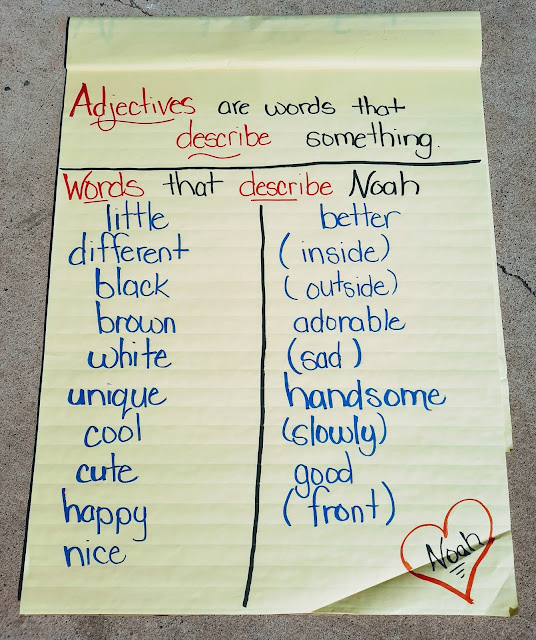 Adjectives are words that
describe something.
Words that describe Noah
little
different
black
brown
white
unique
cool
cute
happy
nice
better
(inside)
(outside)
adorable
(sad)
handsome
(slowly)
good
(front)
Noah